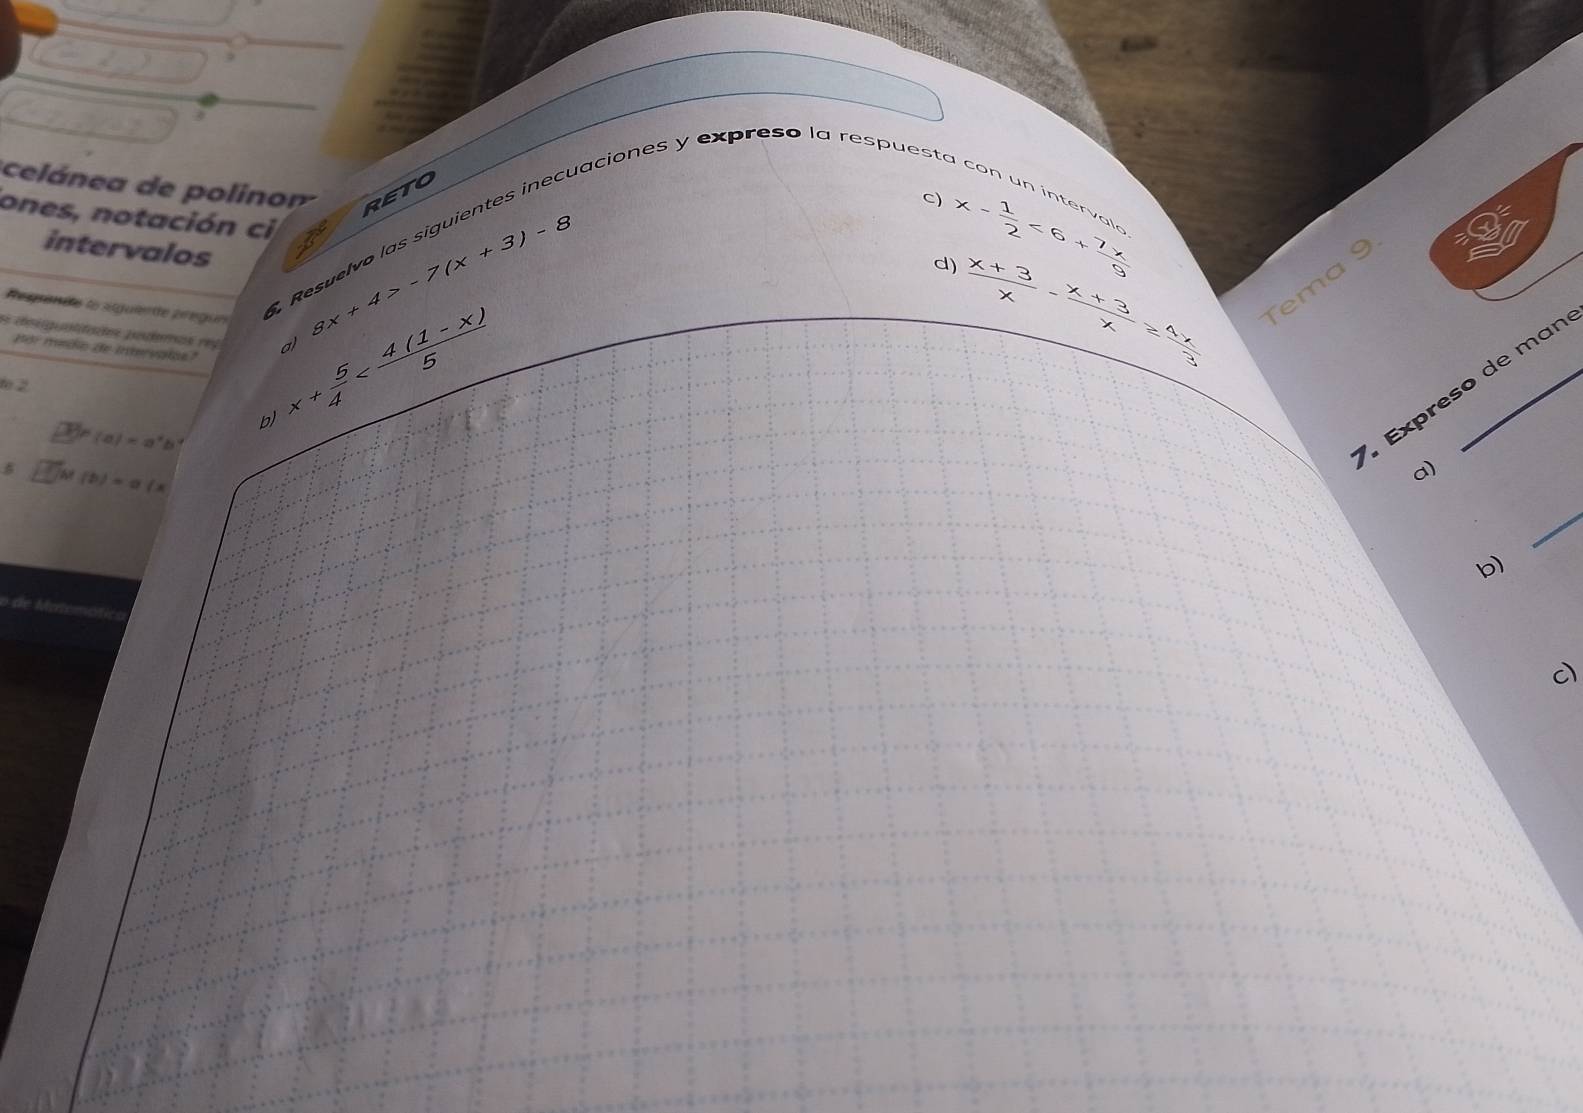 celánea de polinom
ones, notación ci
intervalos
Respondo la siguiente pregun
por medio de intervalos?
RETO
6. Resuelvo las siguientes inecuaciones y expreso la respuesta con un intervalo.
a) 8x + 4 > - 7 (x + 3) - 8
b) x + 5/4 < 4 (1 - x)/5
c) x - 1/2 < 6 + 7x/9
d) x + 3/x - x + 3/x ≥ 4x/3
Tema 9.
7. Expreso de mane
a)
b)
c)